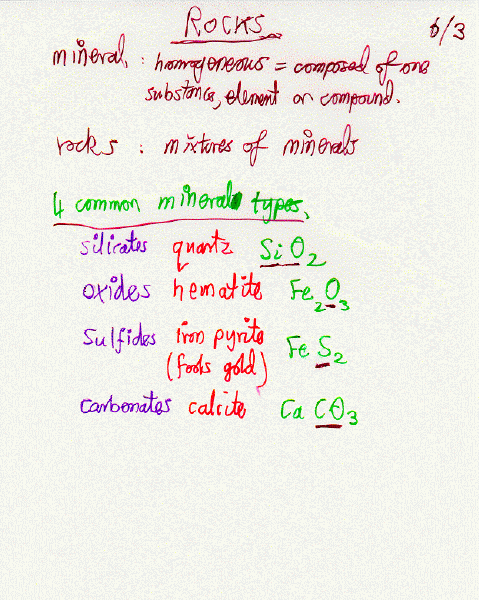 ROCKS
6/3
mineral : homogeneous = composed of one
substance, element or compound.
rocks : mixtures of minerals
4 common mineral types.
silicates quartz SiO2
oxides hematite Fe2O3
Sulfides iron pyrite FeS2
(fools gold)
carbonates calcite CaCO3